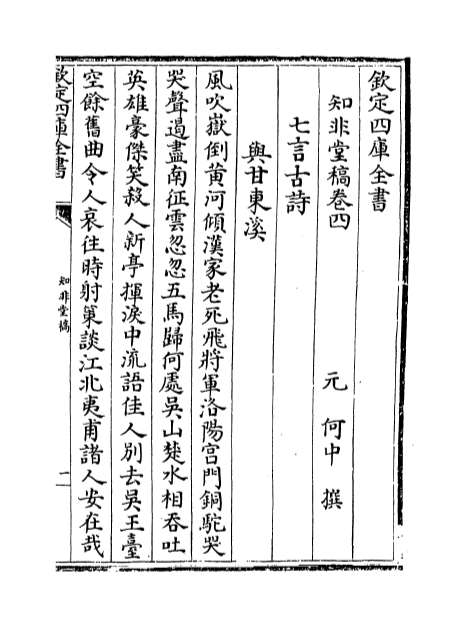 欽定四庫全書
知非堂稿卷四
元 何中 撰
七言古詩
與甘東溪
風吹嶽倒黄河傾漢家老死飛將軍洛陽宫門銅駝哭
哭聲遏盡南征雲忽忽五馬歸何處吳山楚水相吞吐
英雄豪傑笑殺人新亭揮淚中流語佳人別去吳王臺
空餘舊曲令人哀往時射策談江北夷甫諸人安在哉
欽定四庫全書
知非堂稿
一